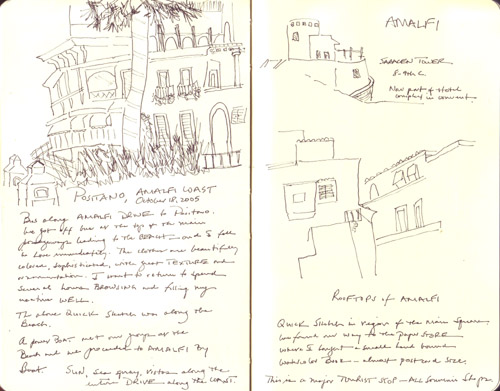 POSITANO, AMALFI COAST
October 18, 2005
Bus along AMALFI DRIVE to Positano.
We got off bus at the top of the main
passageway leading to the BEACH — and I fell
in love immediately. The clothes are beautifully
colored, sophisticated, with great TEXTURE and
ornamentation. I want to return to spend
several hours BROWSING and filling my
suitcase WELL.
The above QUICK Sketch was along the
Beach.
A power BOAT met our group at the
Beach and we proceeded to AMALFI by
boat. SUN, sea spray, vistas along the
entire DRIVE along the COAST.
AMALFI
SARACEN TOWER
8-9th C.
Now part of Hotel
complex in convent
ROOFTOPS OF AMALFI
QUICK Sketch in region of the main Square
we found our way to the paper STORE
where I bought a small hand bound
watercolor Book — almost postcard size.
This is a major TOURIST STOP — All Souvenir Shops